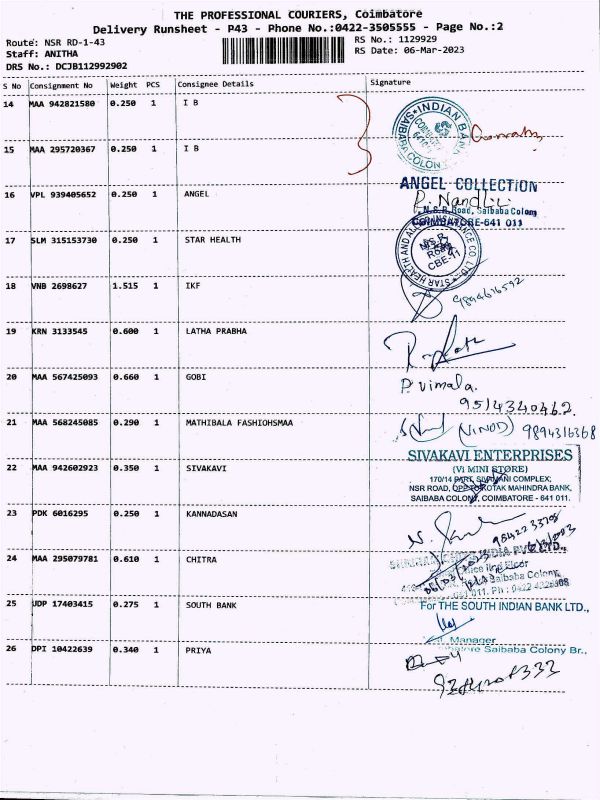 THE PROFESSIONAL COURIERS, Coimbatore
Delivery Runsheet - P43 - Phone No.:0422-3505555 - Page No.:2
Route: NSR RD-1-43
RS No.: 1129929
Staff: ANITHA
RS Date: 06-Mar-2023
DRS No.: DCJB112992902
S No Consignment No Weight PCS Consignee Details Signature
14 MAA 942821580 0.250 1 I B
INDIAN BANK
SAIBABA COLONY
15 MAA 295720367 0.250 1 I B
ANGEL COLLECTION
16 VPL 939405652 0.250 1 ANGEL
P. Nandhi
N.S.R. Road, Saibaba Colony
COIMBATORE-641 011
17 SLM 315153730 0.250 1 STAR HEALTH
STAR HEALTH AND ALLIED INSURANCE CO. LTD.
N.S.R.
Road
CBE-11
18 VNB 2698627 1.515 1 IKF
9894616592
19 KRN 3133545 0.600 1 LATHA PRABHA
20 MAA 567425093 0.660 1 GOBI
P. Vimala.
9514340462.
21 MAA 568245085 0.290 1 MATHIBALA FASHIOHSMAA
(VINOD) 9894316368
SIVAKAVI ENTERPRISES
22 MAA 942602923 0.350 1 SIVAKAVI
(Vi MINI STORE)
170/14 PART, SIVAMANI COMPLEX,
NSR ROAD, OPP.TO KOTAK MAHINDRA BANK,
SAIBABA COLONY, COIMBATORE - 641 011.
23 PDK 6016295 0.250 1 KANNADASAN
24 MAA 295079781 0.610 1 CHITRA
INDIA PVT. LTD.,
Saibaba Colony,
25 UDP 17403415 0.275 1 SOUTH BANK
For THE SOUTH INDIAN BANK LTD.,
Manager
26 DPI 10422639 0.340 1 PRIYA
Saibaba Colony Br.,